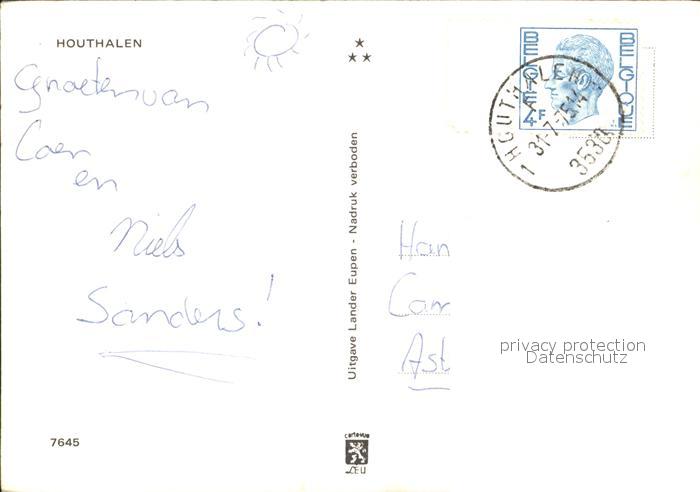 HOUTHALEN
Groeten van
Coen
en
Niels
Sanders!
7645
Uitgave Lander Eupen - Nadruk verboden
cartevue
LEU
BELGIE
4F
BELGIQUE
1 HOUTHALEN 1
31-7-75 14
3530
Han
Cam
Ast
privacy protection
Datenschutz